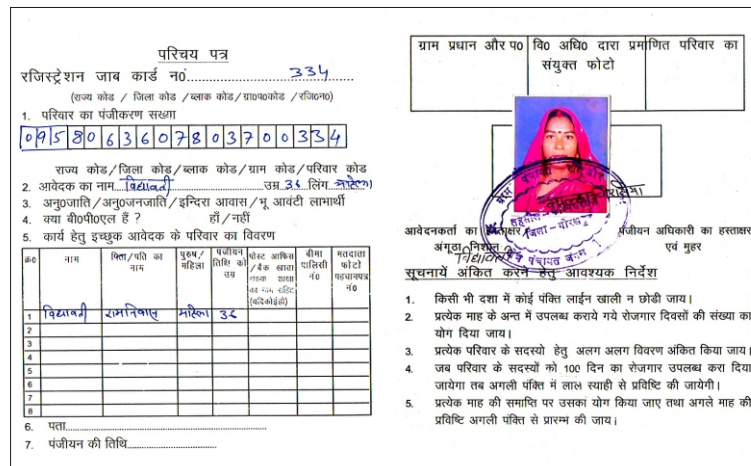 परिचय पत्र
रजिस्ट्रेशन जाब कार्ड न0 334
(राज्य कोड / जिला कोड / ब्लाक कोड / ग्रा0प0कोड / रजि0न0)
1. परिवार का पंजीकरण सख्या
095806360780370 0334
राज्य कोड/जिला कोड/ब्लाक कोड/ग्राम कोड/परिवार कोड
2. आवेदक का नाम विद्यावती उम्र 36 लिंग महिला
3. अनु0जाति/अनु0जनजाति/इन्दिरा आवास/भू आवंटी लाभार्थी
4. क्या बी0पी0एल हैं ? हाँ/नहीं
5. कार्य हेतु इच्छुक आवेदक के परिवार का विवरण
क्र0 नाम पिता/पति का नाम पुरूष/महिला पंजीयन तिथि को उम्र पोस्ट आफिस/बैंक खाता का नाम सहित बीमा पालिसी नं0 मतदाता फोटो पहचानपत्र नं0
1 विद्यावती रामनिवास महिला 36
2
3
4
5
6
7
8
6. पता
7. पंजीयन की तिथि
ग्राम प्रधान और प0 वि0 अधि0 दारा प्रमाणित परिवार का
संयुक्त फोटो
आवेदनकर्ता का हस्ताक्षर पंजीयन अधिकारी का हस्ताक्षर
अंगूठा निशान एवं मुहर
विद्यावती
सूचनायें अंकित करने हेतु आवश्यक निर्देश
1. किसी भी दशा में कोई पंक्ति लाईन खाली न छोडी जाय।
2. प्रत्येक माह के अन्त में उपलब्ध कराये गये रोजगार दिवसों की संख्या का
योग दिया जाय।
3. प्रत्येक परिवार के सदस्यो हेतु अलग अलग विवरण अंकित किया जाय।
4. जब परिवार के सदस्यों को 100 दिन का रोजगार उपलब्ध करा दिया
जायेगा तब अगली पंक्ति में लाल स्याही से प्रविष्टि की जायेगी।
5. प्रत्येक माह की समाप्ति पर उसका योग किया जाए तथा अगले माह की
प्रविष्टि अगली पंक्ति से प्रारम्भ की जाय।